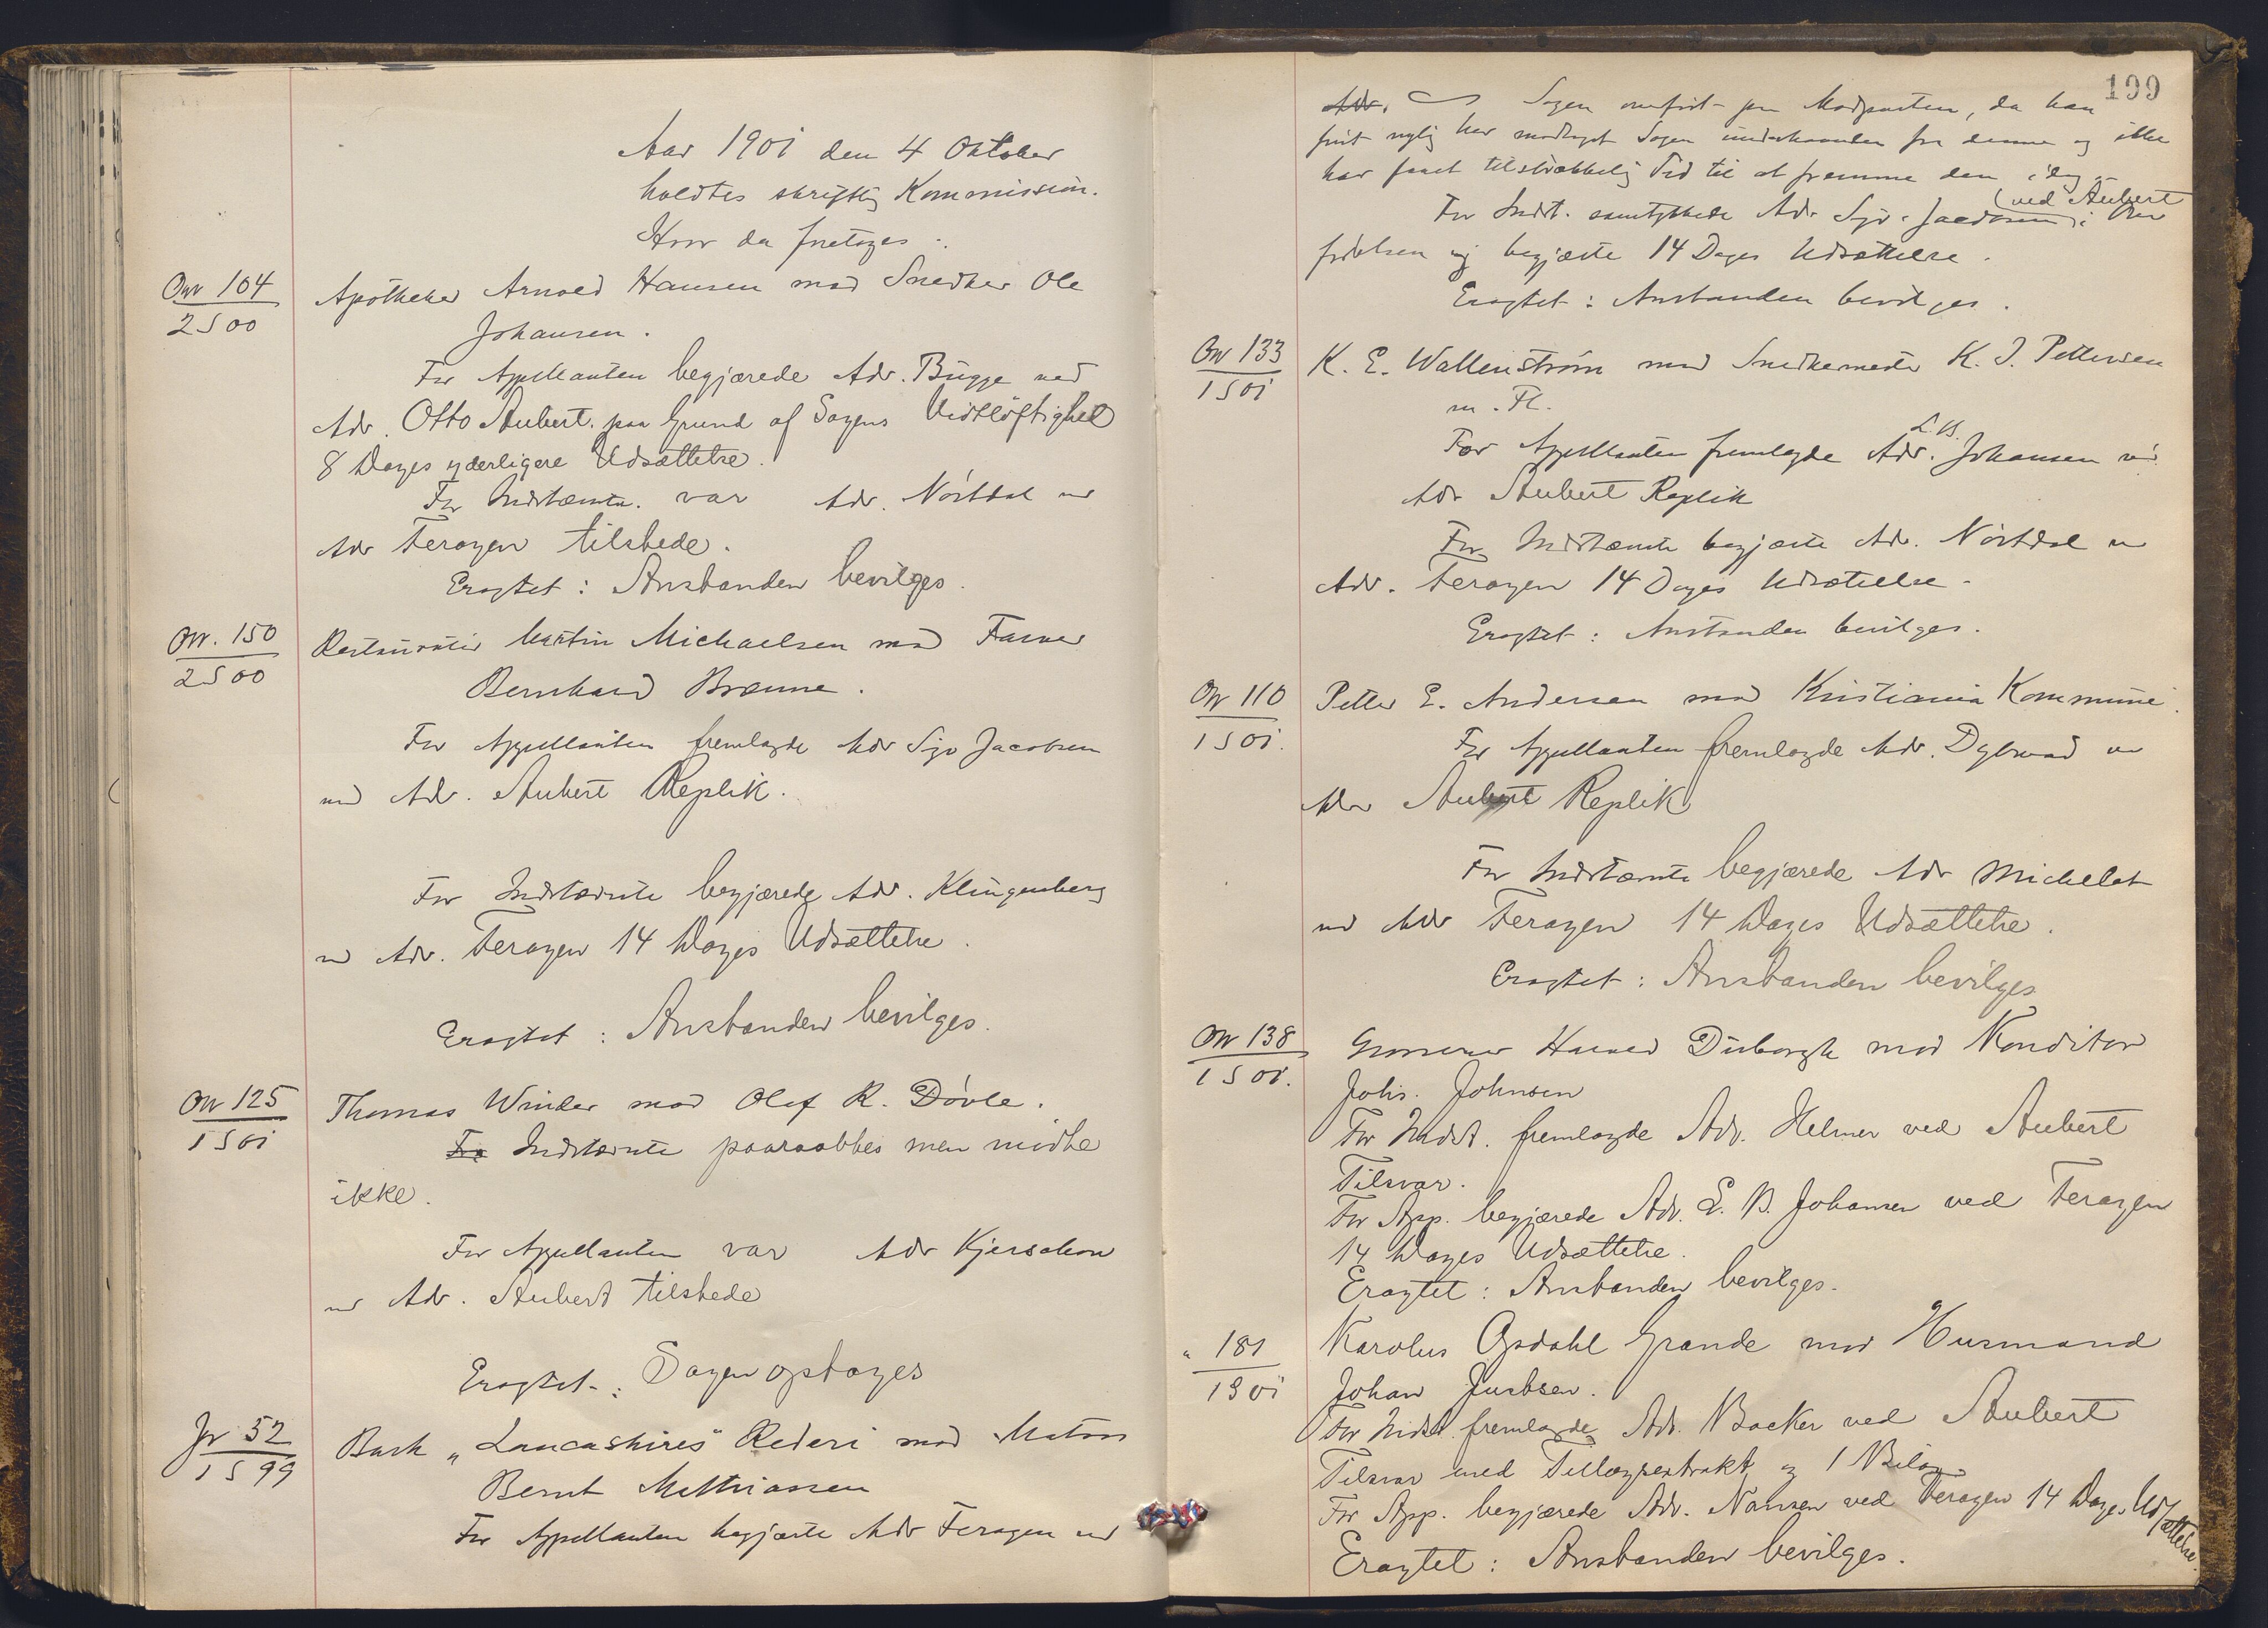 Aar 1901 den 4 Oktober
holdtes skriftlig Kommission.
Hvor da foretoges:
Ov 104
2 S 00
Apotheker Arnold Hansen mod Snedker Ole
Johansen.
For Appellanten begjærede Adv. Bugge ved
Adv. Otto Aubert paa Grund af Sagens Vidtløftighed
8 Dages yderligere Udsættelse.
For Indstævnte var Adv. Nørtdal ved
Adv Feragen tilstede.
Eragtet: Anstanden bevilges.
Ov. 150
2 S 00
Restauratør Martin Michaelsen mod Farver
Bernhard Brænne.
For Appellanten fremlagde Adv Sigv Jacobsen
ved Adv. Aubert Replik.
For Indstævnte begjærede Adv. Klingenberg
ved Adv. Feragen 14 Dages Udsættelse.
Eragtet: Anstanden bevilges.
Ov 125
1 S 01
Thomas Winder mod Olef R. Døvle.
Indstævnte paaraabtes men mødte
ikke.
For Appellanten var Adv Kjerschow
ved Adv. Aubert tilstede
Eragtet: Sagen optages
Jr 52
1 S 99
Bark "Lancashires" Rederi mod Matros
Bernt Mathiassen
For Appellanten begjærte Adv Feragen ved
199
Adv. Sagen overført fra Modparten, da han
først nylig har modtaget Sagen underhaanden fra denne og ikke
har faaet tilstrækkelig Tid til at fremme den idag.
ved Aubert
For Indst. samtykkede Adv. Sigv. Jacobsen i Over
førelsen og begjærte 14 Dages Udsættelse.
Eragtet: Anstanden bevilges.
Ov 133
1 S 01
K. E. Wallenstrøm mod Snedkermester K. J. Pettersen
m. Fl.
L. B.
For Appellanten fremlagde Adv. Johansen ved
Adv Aubert Replik
For Indstævnte begjærte Adv. Nørtdal ved
Adv. Feragen 14 Dages Udsættelse.
Eragtet: Anstanden bevilges.
Ov 110
1 S 01.
Petter E. Andersen mod Kristiania Kommune.
For Appellanten fremlagde Adv. Dybwad ved
Adv Aubert Replik
For Indstævnte begjærede Adv Michelet
ved Adv Feragen 14 Dages Udsættelse.
Eragtet: Anstanden bevilges
Ov 138
1 S 01.
Grosserer Harald Duborgh mod Konditor
Johs. Johnsen
For Indst. fremlagde Adv. Helmer ved Aubert
Tilsvar.
For App. begjærede Adv. L. B. Johansen ved Feragen
14 Dages Udsættelse.
Eragtet: Anstanden bevilges.
" 181
1901
Karolus Opdahl Grande mod Husmand
Johan Justsen.
For Indst. fremlagde Adv. Backer ved Aubert
Tilsvar med Tillægsextrakt og 1 Bilag.
For App. begjærede Adv. Nansen ved Feragen 14 Dages Udsættelse.
Eragtet: Anstanden bevilges.